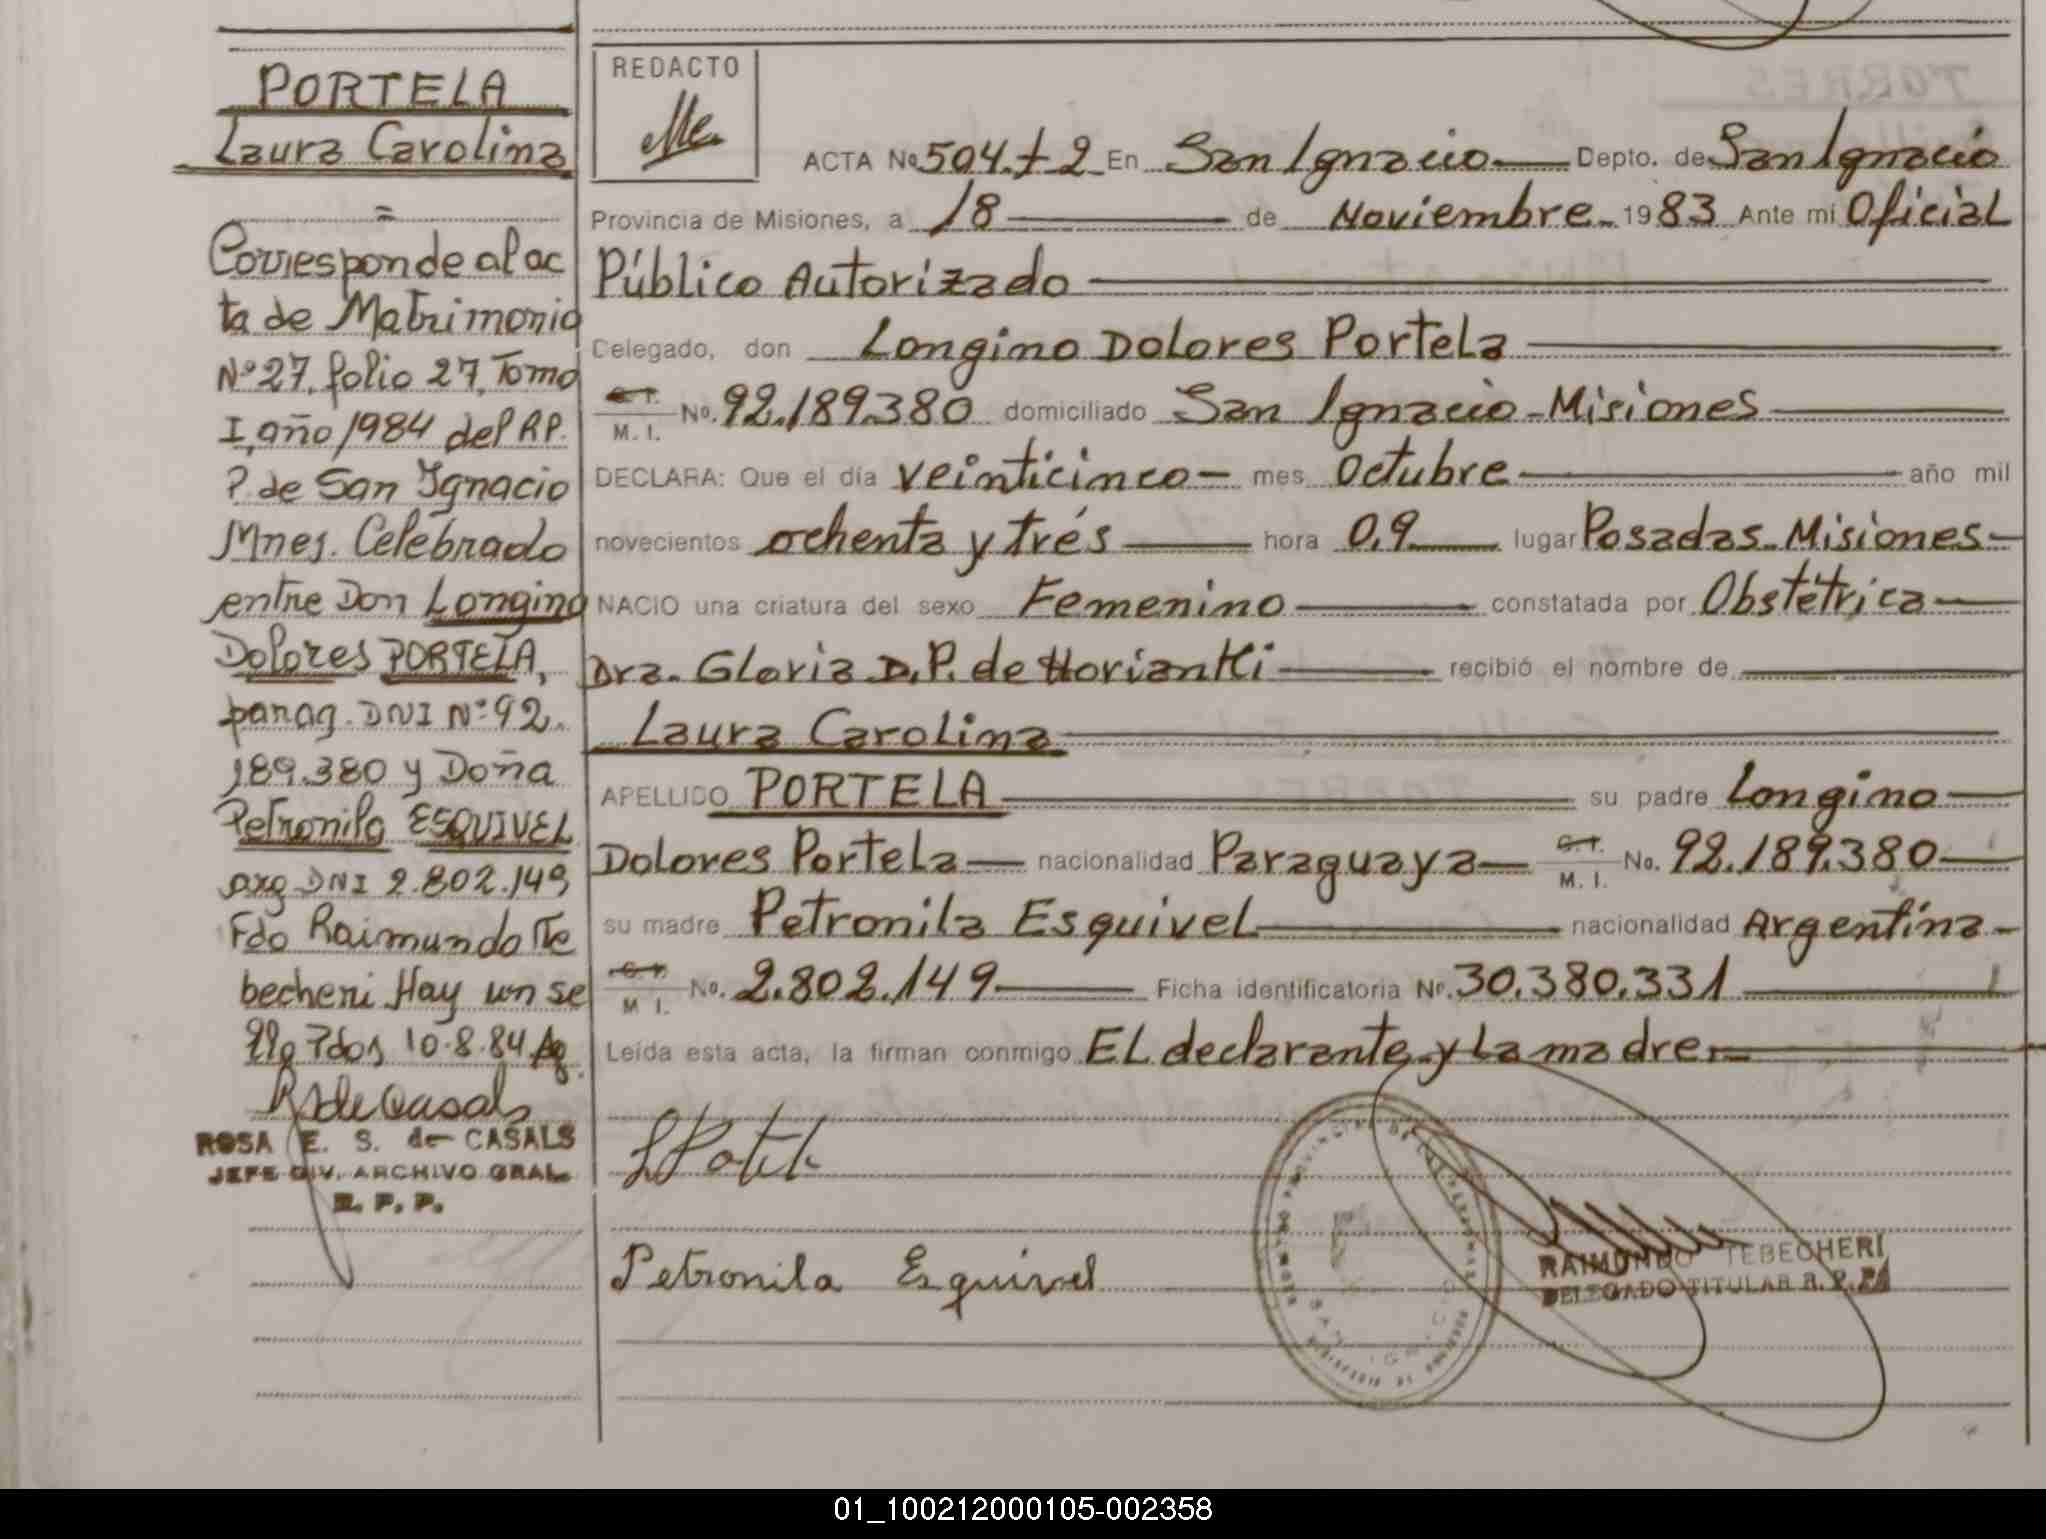 PORTELA
Laura Carolina
=
Corresponde al ac
ta de Matrimonio
Nº27, folio 27, Tomo
I, año 1984 del R.P.
P. de San Ignacio
Mnes. Celebrado
entre Don Longino
Dolores PORTELA,
parag. DNI Nº 92.
189.380 y Doña
Petronila ESQUIVEL
arg DNI 2.802.149
Fdo Raimundo Te
becheri Hay un se
llo Pdas 10-8-84
RSdeCasals
ROSA E. S. de CASALS
JEFE DIV. ARCHIVO GRAL.
R. P. P.
REDACTO
ACTA No 504. t 2 En San Ignacio Depto. de San Ignacio
Provincia de Misiones, a 18 de Noviembre 1983 Ante mi Oficial
Público Autorizado
Delegado, don Longino Dolores Portela
C.I. M. I. No. 92.189.380 domiciliado San Ignacio-Misiones
DECLARA: Que el día veinticinco mes Octubre año mil
novecientos ochenta y trés hora 0,9 lugar Posadas-Misiones
NACIO una criatura del sexo Femenino constatada por Obstétrica
Dra. Gloria D.P. de Horianski recibió el nombre de
Laura Carolina
APELLIDO PORTELA su padre Longino
Dolores Portela nacionalidad Paraguaya C.I. M. I. No. 92.189.380
su madre Petronila Esquivel nacionalidad Argentina
C.I. M. I. No. 2.802.149 Ficha identificatoria Nº. 30.380.331
Leída esta acta, la firman conmigo EL declarante y La madre
Petronila Esquivel
RAIMUNDO TEBECHERI
DELEGADO TITULAR R. P. P.
SAN IGNACIO
01_100212000105-002358